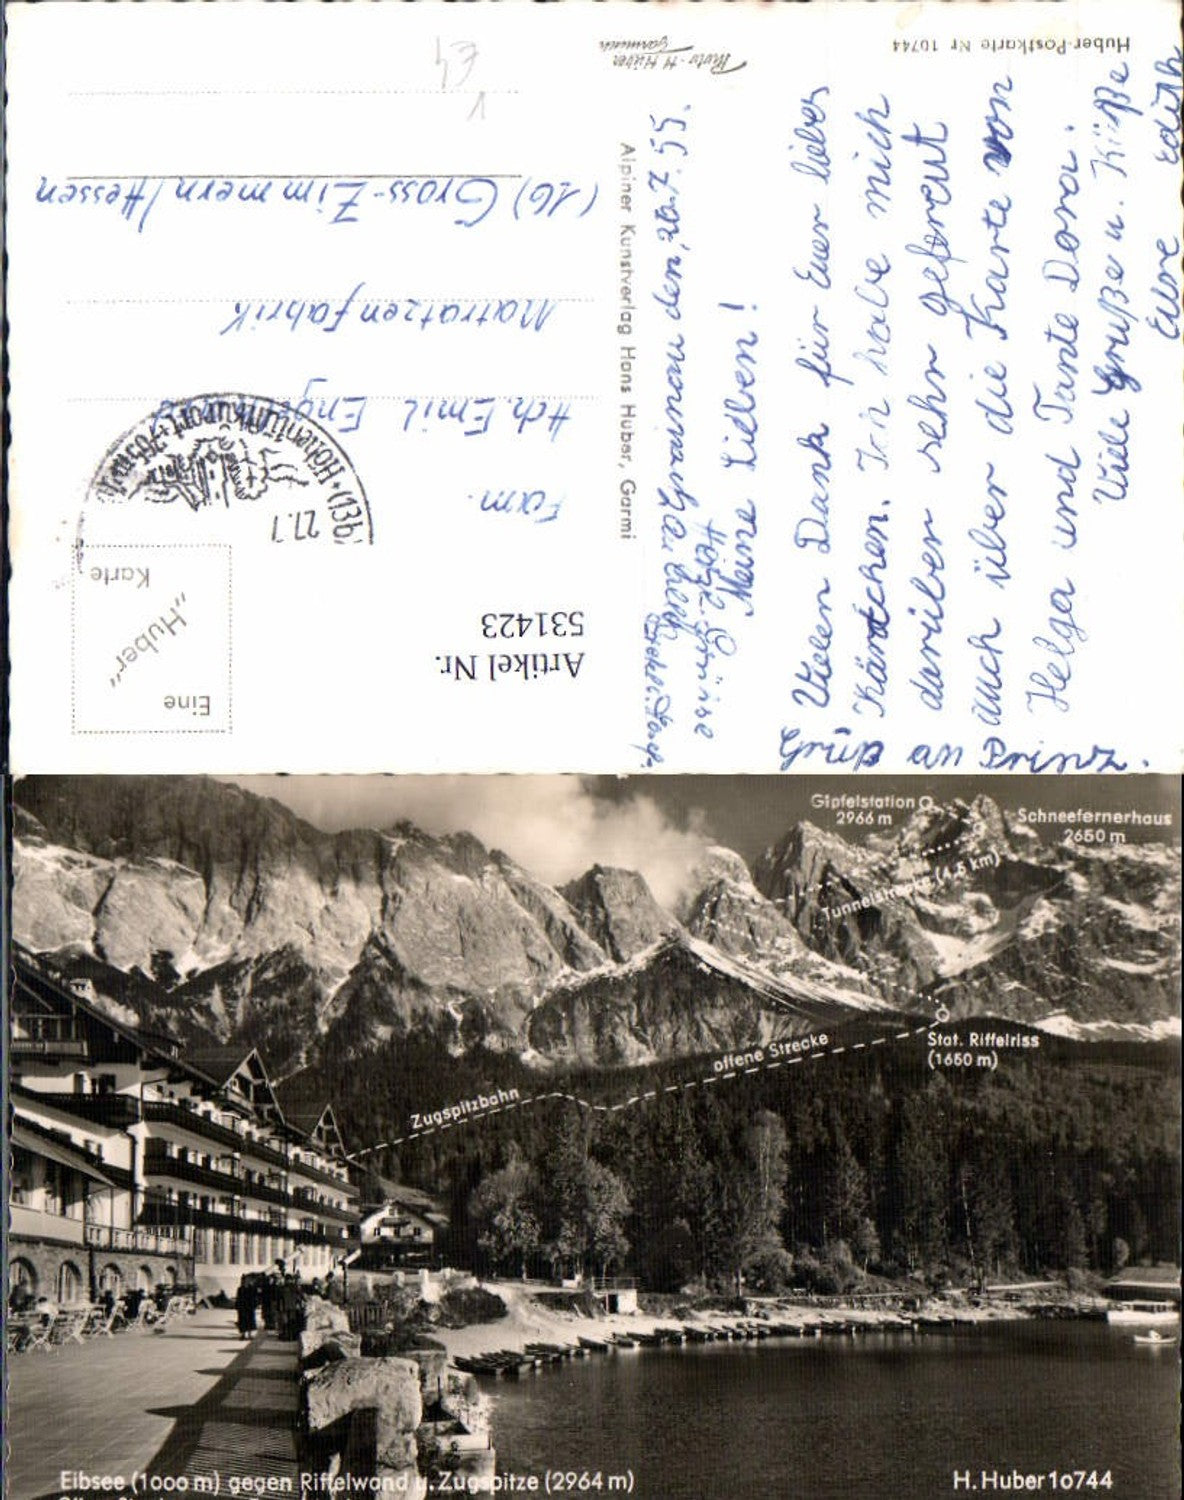 Huber-Postkarte Nr 10744
Photo-H Huber
Garmisch
Alpiner Kunstverlag Hans Huber, Garmi
Grainau den, 26.7.55.
Meine Lieben!
Vielen Dank für Euer liebes
Kärtchen. Ich habe mich
darüber sehr gefreut
auch über die Karte von
Helga und Tante Dora.
Viele Grüße u. Küße
Eure Edith
Gruß an Prinz.
Eine
„Huber"
Karte
Artikel Nr.
531423
27.7
(13b)
Fam.
Hch. Emil Eng
Matratzenfabrik
(16) Gross-Zimmern/Hessen
Gipfelstation
2966 m
Schneefernerhaus
2650 m
Tunnelstrecke (4.5 km)
Stat. Riffelriss
(1650 m)
offene Strecke
Zugspitzbahn
Eibsee (1000 m) gegen Riffelwand u. Zugspitze (2964 m)
H. Huber 10744